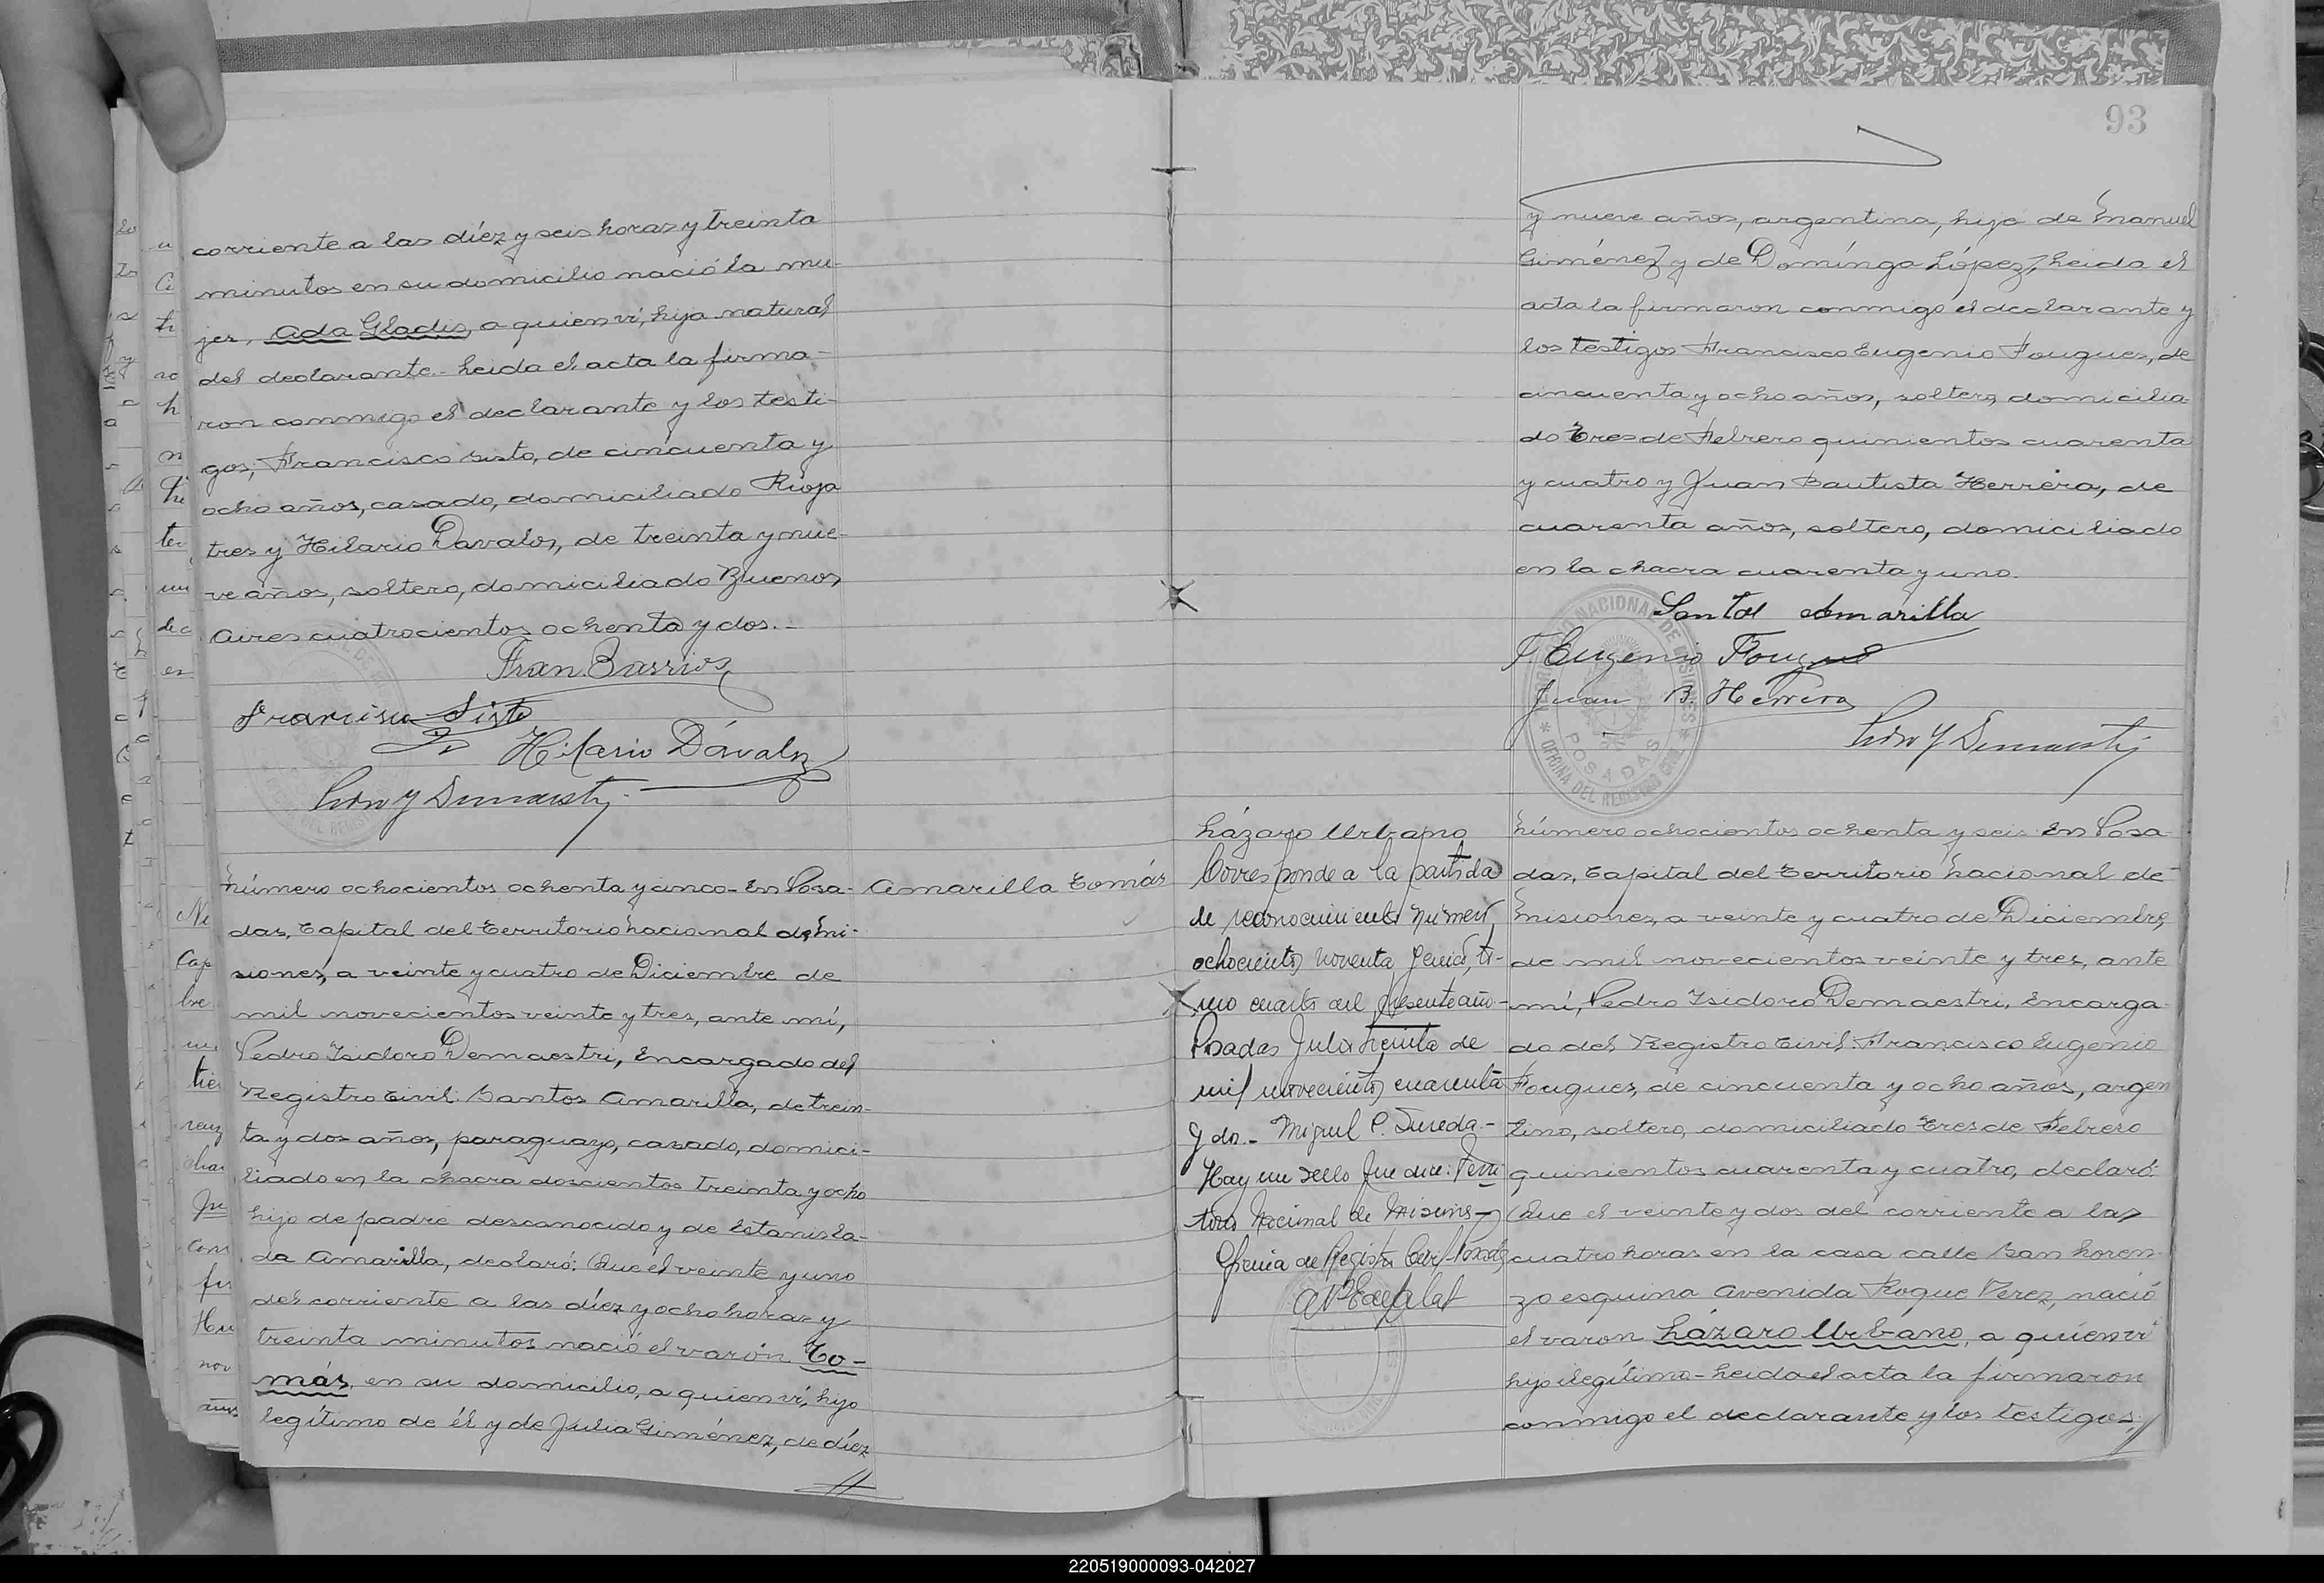 corriente a las díez y seis horas y treinta
minutos en su domicilio nació la mu-
jer, Ada Gladis, a quien ví, hija natural
del declarante.- Leida el acta la firma-
ron conmigo el declarante y los testi-
gos, Francisco Sisto, de cincuenta y
ocho años, casado, domiciliado Rioja
tres y Hilario Davalos, de treinta y nue-
ve años, soltero, domiciliado Buenos
Aires cuatrocientos ochenta y dos.-
Fran. Barrios
Francisco Sisto
Hilario Dávalos
Número ochocientos ochenta y cinco- En Posa-
das, Capital del Territorio Nacional de Mi-
siones, a veinte y cuatro de Diciembre de
mil novecientos veinte y tres, ante mí,
Pedro Isidoro Demaestri, Encargado del
Registro Civil: Santos Amarilla, de trein-
ta y dos años, paraguayo, casado, domici-
liado en la chacra doscientos treinta y ocho
hijo de padre desconocido y de Estanisla-
da Amarilla, declaró: Que el veinte y uno
del corriente a las díez y ocho horas y
treinta minutos nació el varón To-
más, en su domicilio, a quien ví, hijo
legítimo de él y de Julia Giménez, de díez
Amarilla Tomás
93
y nueve años, argentina, hija de Manuel
Giménez y de Domínga López, Leida el
acta la firmaron conmigo el declarante y
los testigos Francisco Eugenio Fouques, de
cincuenta y ocho años, soltero, domicilia-
do Tres de Febrero quinientos cuarenta
y cuatro y Juan Bautista Herrera, de
cuarenta años, soltero, domiciliado
en la chacra cuarenta y uno.
Santos Amarilla
F. Eugenio Fouques
Juan B. Herrera
NACIONAL DE MISIONES
POSADAS
OFICINA DEL REGISTRO CIVIL
Lázaro Urbano
Corresponde a la partida
de reconocimiento número
ochocientos noventa y cinco, to-
mo cuarto del presente año-
Posadas Julio treinta de
mil novecientos cuarenta
y do.- Miguel P.
Hay un sello que dice: Terri-
torio Nacional de Misiones-
Oficina de Registro Civil-Posadas
Número ochocientos ochenta y seis En Posa-
das, Capital del Territorio Nacional de
Misiones, a veinte y cuatro de Diciembre,
de mil novecientos veinte y tres, ante
mí, Pedro Isidoro Demaestri, Encarga-
do del Registro Civil: Francisco Eugenio
Fouques, de cincuenta y ocho años, argen
tino, soltero, domiciliado Tres de Febrero
quinientos cuarenta y cuatro, declaró:
Que el veinte y dos del corriente a las
cuatro horas en la casa calle San Loren-
zo esquina Avenida Roque Perez, nació
el varon Lázaro Urbano, a quien ví
hijo ilegítimo- Leida el acta la firmaron
conmigo el declarante y los testigos,
220519000093-042027